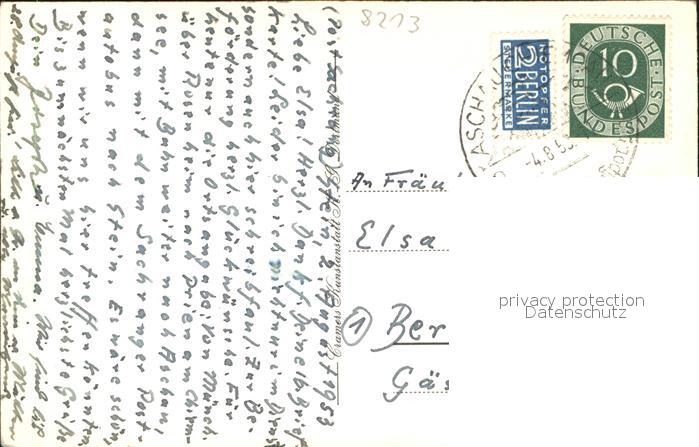 8213
NOTOPFER
2 BERLIN
STEUERMARKE
DEUTSCHE
10
BUNDESPOST
ASCHAU
-4.8.53
Stein, 2. August 1953
Liebe Elsa! Herzl. Dank f. Deine lb. Brief-
karte. Leider bin ich nicht nur im Dienst
sondern auch hier schreibfaul. Zur Be-
förderung herzl. Glückwünsche. Für
heute nur die Ortsangabe: Von Münch.
über Rosenheim nach Prien am Chiem-
see, mit Bahn weiter nach Aschau,
dann mit dem Sachranger Post-
autobus nach Stein. Es wäre schön,
wenn wir uns hier treffen könnten.
Bis zum nächsten Mal herzlichste Grüße
Dein
Cramers Kunstanstalt
An Fräu
Elsa
1 Ber
Gäs
privacy protection
Datenschutz